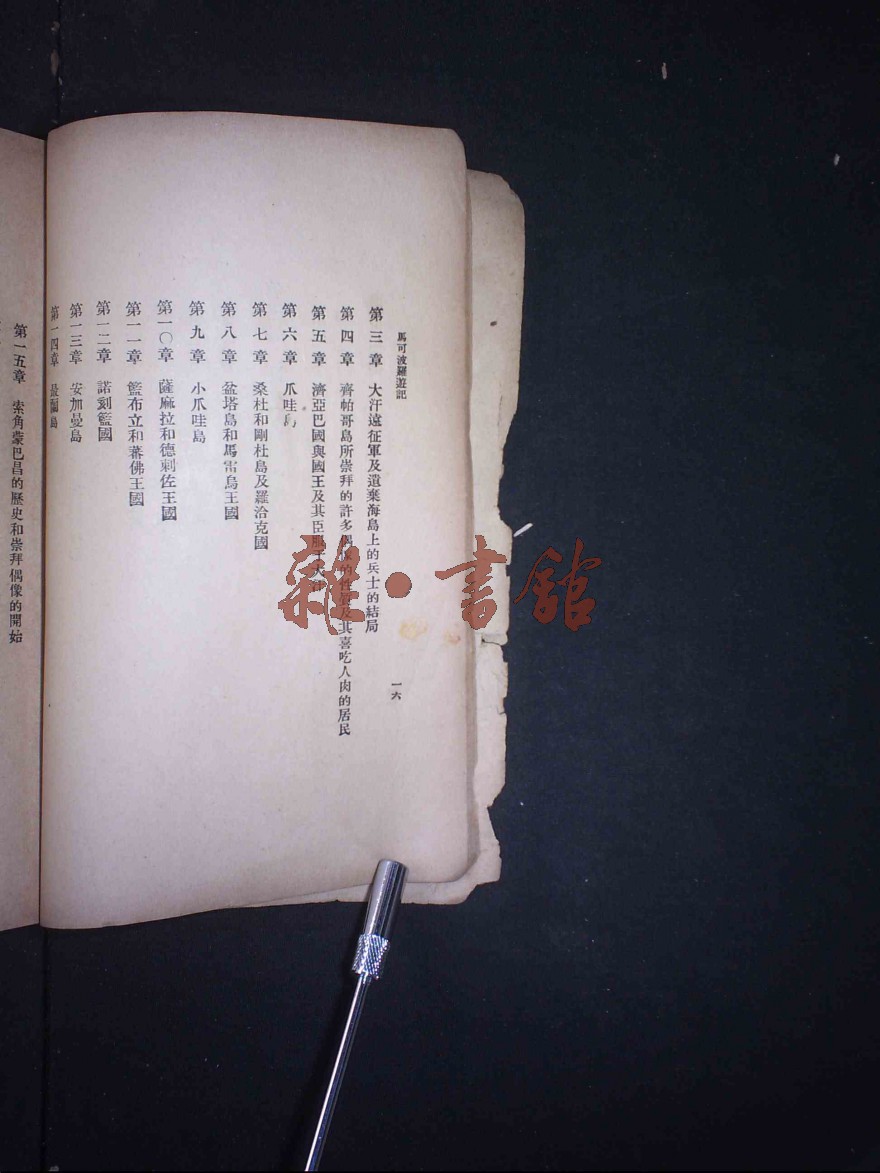 馬可波羅遊記
一六
第三章 大汗遠征軍及遺棄海島上的兵士的結局
第四章 齊帕哥島所崇拜的許多偶像的性質及其喜吃人肉的居民
第五章 濟亞巴國與國王及其臣服于大汗
第六章 爪哇島
第七章 桑杜和剛杜島及羅洽克國
第八章 盆塔島和馬雷烏王國
第九章 小爪哇島
第一〇章 薩麻拉和德剌佐王國
第一一章 籃布立和蕃佛王國
第一二章 諾刻籃國
第一三章 安加曼島
第一四章 島
第一五章 索角蒙巴昌的歷史和崇拜偶像的開始
雜·書館